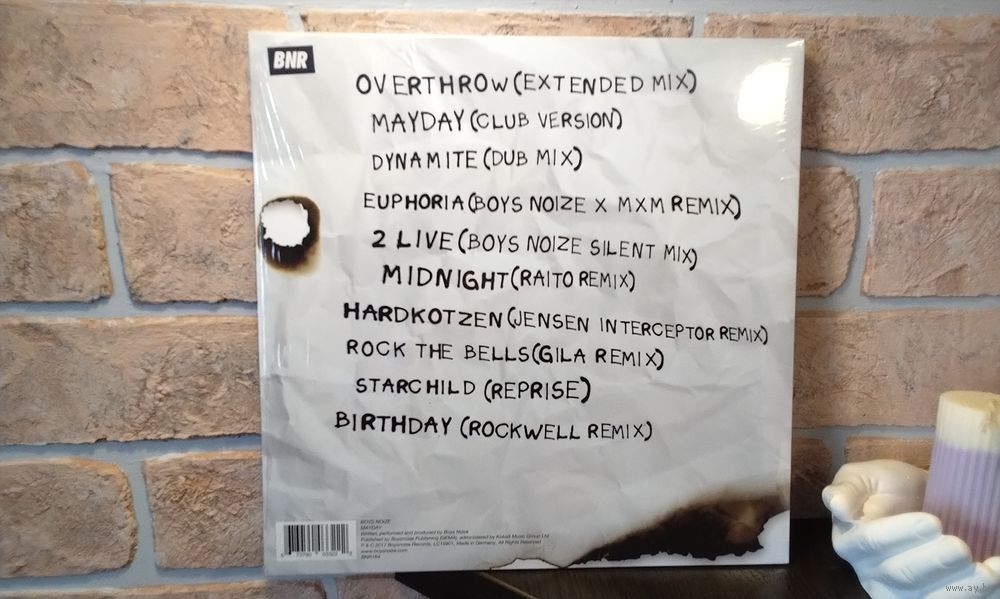 BNR
OVERTHROW (EXTENDED MIX)
MAYDAY (CLUB VERSION)
DYNAMITE (DUB MIX)
EUPHORIA (BOYS NOIZE X MXM REMIX)
2 LIVE (BOYS NOIZE SILENT MIX)
MIDNIGHT (RAITO REMIX)
HARDKOTZEN (JENSEN INTERCEPTOR REMIX)
ROCK THE BELLS (GILA REMIX)
STARCHILD (REPRISE)
BIRTHDAY (ROCKWELL REMIX)
BOYS NOIZE
MAYDAY
Written, performed and produced by Boys Noize
Published by Boysnoize Publishing (GEMA), administered by Kobalt Music Group Ltd
P & C 2017 Boysnoize Records, LC15901, Made in Germany, All Rights Reserved
www.boysnoize.com
BNR164